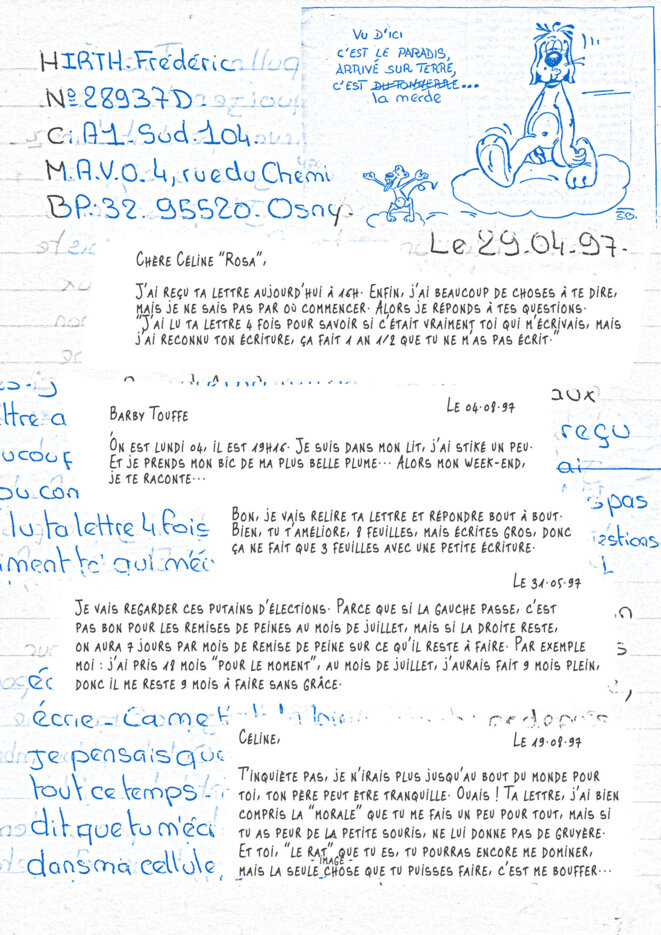 HIRTH. Frédéric
Nº 28937D
C: A1. Sud. 104
M.A.V.O. 4, rue du Chemi
BP: 32. 95520. Osny.
VU D'ICI
C'EST LE PARADIS,
ARRIVÉ SUR TERRE,
C'EST DU TONNERRE...
la merde
S.O.
Le 29.04.97.
CHÈRE CÉLINE "ROSA",
J'AI REÇU TA LETTRE AUJOURD'HUI À 16H. ENFIN, J'AI BEAUCOUP DE CHOSES À TE DIRE,
MAIS JE NE SAIS PAS PAR OÙ COMMENCER. ALORS JE RÉPONDS À TES QUESTIONS.
"J'AI LU TA LETTRE 4 FOIS POUR SAVOIR SI C'ÉTAIT VRAIMENT TOI QUI M'ÉCRIVAIS, MAIS
J'AI RECONNU TON ÉCRITURE, ÇA FAIT 1 AN 1/2 QUE TU NE M'AS PAS ÉCRIT."
aux
ttre a
reçu
BARBY TOUFFE
LE 04-08-97
ON EST LUNDI 04, IL EST 19H16. JE SUIS DANS MON LIT, J'AI STIKÉ UN PEU.
ET JE PRENDS MON BIC DE MA PLUS BELLE PLUME... ALORS MON WEEK-END,
JE TE RACONTE...
ucoup
ai
ou con
pas
lu ta lettre 4 fois
estions
ment to qui m'éc
BON, JE VAIS RELIRE TA LETTRE ET RÉPONDRE BOUT À BOUT.
BIEN, TU T'AMÉLIORE, 8 FEUILLES, MAIS ÉCRITES GROS, DONC
ÇA NE FAIT QUE 3 FEUILLES AVEC UNE PETITE ÉCRITURE.
LE 31-05-97
JE VAIS REGARDER CES PUTAINS D'ÉLECTIONS. PARCE QUE SI LA GAUCHE PASSE, C'EST
PAS BON POUR LES REMISES DE PEINES AU MOIS DE JUILLET, MAIS SI LA DROITE RESTE,
ON AURA 7 JOURS PAR MOIS DE REMISE DE PEINE SUR CE QU'IL RESTE À FAIRE. PAR EXEMPLE
MOI : J'AI PRIS 18 MOIS "POUR LE MOMENT", AU MOIS DE JUILLET, J'AURAIS FAIT 9 MOIS PLEIN,
DONC IL ME RESTE 9 MOIS À FAIRE SANS GRÂCE.
éc
écrie - Ca me
je pensais que
tout ce temps -
dit que tu m'éci
dans ma cellule,
CÉLINE,
LE 19-08-97
T'INQUIÈTE PAS, JE N'IRAIS PLUS JUSQU'AU BOUT DU MONDE POUR
TOI, TON PÈRE PEUT ÊTRE TRANQUILLE. OUAIS ! TA LETTRE, J'AI BIEN
COMPRIS LA "MORALE" QUE TU ME FAIS UN PEU POUR TOUT, MAIS SI
TU AS PEUR DE LA PETITE SOURIS, NE LUI DONNE PAS DE GRUYÈRE.
ET TOI, "LE RAT" QUE TU ES, TU POURRAS ENCORE ME DOMINER,
- IMAGE -
MAIS LA SEULE CHOSE QUE TU PUISSES FAIRE, C'EST ME BOUFFER...